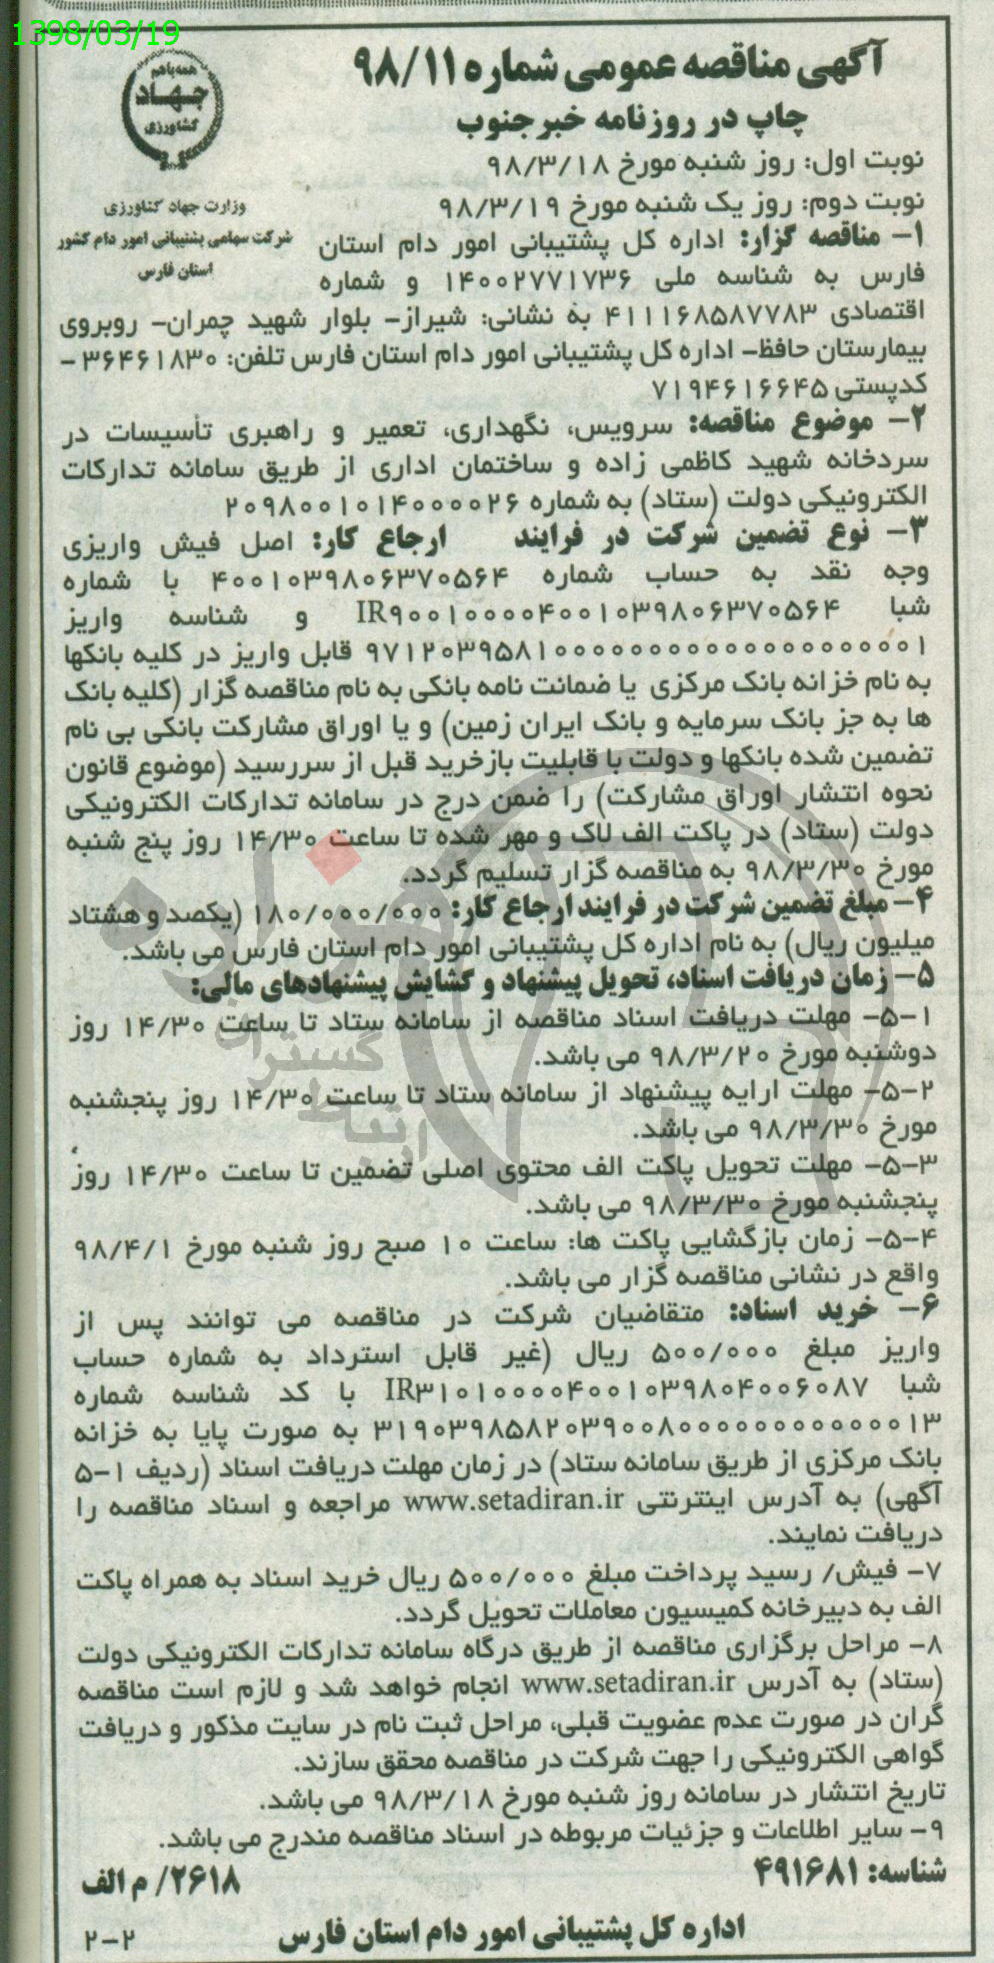 1398/03/19
آگهی مناقصه عمومی شماره ۹۸/۱۱
چاپ در روزنامه خبرجنوب
همه با هم
جهاد
کشاورزی
وزارت جهاد کشاورزی
شرکت سهامی پشتیبانی امور دام کشور
استان فارس
نوبت اول: روز شنبه مورخ ۹۸/۳/۱۸
نوبت دوم: روز یک شنبه مورخ ۹۸/۳/۱۹
۱- مناقصه گزار: اداره کل پشتیبانی امور دام استان
فارس به شناسه ملی ۱۴۰۰۲۷۷۱۷۳۶ و شماره
اقتصادی ۴۱۱۱۶۸۵۸۷۷۸۳ به نشانی: شیراز- بلوار شهید چمران- روبروی
بیمارستان حافظ- اداره کل پشتیبانی امور دام استان فارس تلفن: ۳۶۴۶۱۸۳۰ -
کدپستی ۷۱۹۴۶۱۶۶۴۵
۲- موضوع مناقصه: سرویس، نگهداری، تعمیر و راهبری تأسیسات در
سردخانه شهید کاظمی زاده و ساختمان اداری از طریق سامانه تدارکات
الکترونیکی دولت (ستاد) به شماره ۲۰۹۸۰۰۱۰۱۴۰۰۰۰۲۶
۳- نوع تضمین شرکت در فرایند ارجاع کار: اصل فیش واریزی
وجه نقد به حساب شماره ۴۰۰۱۰۳۹۸۰۶۳۷۰۵۶۴ با شماره
شبا IR۹۰۰۱۰۰۰۰۴۰۰۱۰۳۹۸۰۶۳۷۰۵۶۴ و شناسه واریز
۹۷۱۲۰۳۹۵۸۱۰۰۰۰۰۰۰۰۰۰۰۰۰۰۰۰۰۰۱ قابل واریز در کلیه بانکها
به نام خزانه بانک مرکزی یا ضمانت نامه بانکی به نام مناقصه گزار (کلیه بانک
ها به جز بانک سرمایه و بانک ایران زمین) و یا اوراق مشارکت بانکی بی نام
تضمین شده بانکها و دولت با قابلیت بازخرید قبل از سررسید (موضوع قانون
نحوه انتشار اوراق مشارکت) را ضمن درج در سامانه تدارکات الکترونیکی
دولت (ستاد) در پاکت الف لاک و مهر شده تا ساعت ۱۴/۳۰ روز پنج شنبه
مورخ ۹۸/۳/۳۰ به مناقصه گزار تسلیم گردد.
۴- مبلغ تضمین شرکت در فرایند ارجاع کار: ۱۸۰/۰۰۰/۰۰۰ (یکصد و هشتاد
میلیون ریال) به نام اداره کل پشتیبانی امور دام استان فارس می باشد.
۵- زمان دریافت اسناد، تحویل پیشنهاد و گشایش پیشنهادهای مالی:
۵-۱- مهلت دریافت اسناد مناقصه از سامانه ستاد تا ساعت ۱۴/۳۰ روز
دوشنبه مورخ ۹۸/۳/۲۰ می باشد.
۵-۲- مهلت ارایه پیشنهاد از سامانه ستاد تا ساعت ۱۴/۳۰ روز پنجشنبه
مورخ ۹۸/۳/۳۰ می باشد.
۵-۳- مهلت تحویل پاکت الف محتوی اصلی تضمین تا ساعت ۱۴/۳۰ روز
پنجشنبه مورخ ۹۸/۳/۳۰ می باشد.
۵-۴- زمان بازگشایی پاکت ها: ساعت ۱۰ صبح روز شنبه مورخ ۹۸/۴/۱
واقع در نشانی مناقصه گزار می باشد.
۶- خرید اسناد: متقاضیان شرکت در مناقصه می توانند پس از
واریز مبلغ ۵۰۰/۰۰۰ ریال (غیر قابل استرداد به شماره حساب
شبا IR۳۱۰۱۰۰۰۰۴۰۰۱۰۳۹۸۰۴۰۰۶۰۸۷ با کد شناسه شماره
۳۱۹۰۳۹۸۵۸۲۰۳۹۰۰۸۰۰۰۰۰۰۰۰۰۰۰۰۱۳ به صورت پایا به خزانه
بانک مرکزی از طریق سامانه ستاد) در زمان مهلت دریافت اسناد (ردیف ۱-۵
آگهی) به آدرس اینترنتی www.setadiran.ir مراجعه و اسناد مناقصه را
دریافت نمایند.
۷- فیش/ رسید پرداخت مبلغ ۵۰۰/۰۰۰ ریال خرید اسناد به همراه پاکت
الف به دبیرخانه کمیسیون معاملات تحویل گردد.
۸- مراحل برگزاری مناقصه از طریق درگاه سامانه تدارکات الکترونیکی دولت
(ستاد) به آدرس www.setadiran.ir انجام خواهد شد و لازم است مناقصه
گران در صورت عدم عضویت قبلی، مراحل ثبت نام در سایت مذکور و دریافت
گواهی الکترونیکی را جهت شرکت در مناقصه محقق سازند.
تاریخ انتشار در سامانه روز شنبه مورخ ۹۸/۳/۱۸ می باشد.
۹- سایر اطلاعات و جزئیات مربوطه در اسناد مناقصه مندرج می باشد.
شناسه: ۴۹۱۶۸۱ ۲۶۱۸/ م الف
اداره کل پشتیبانی امور دام استان فارس
۲-۲